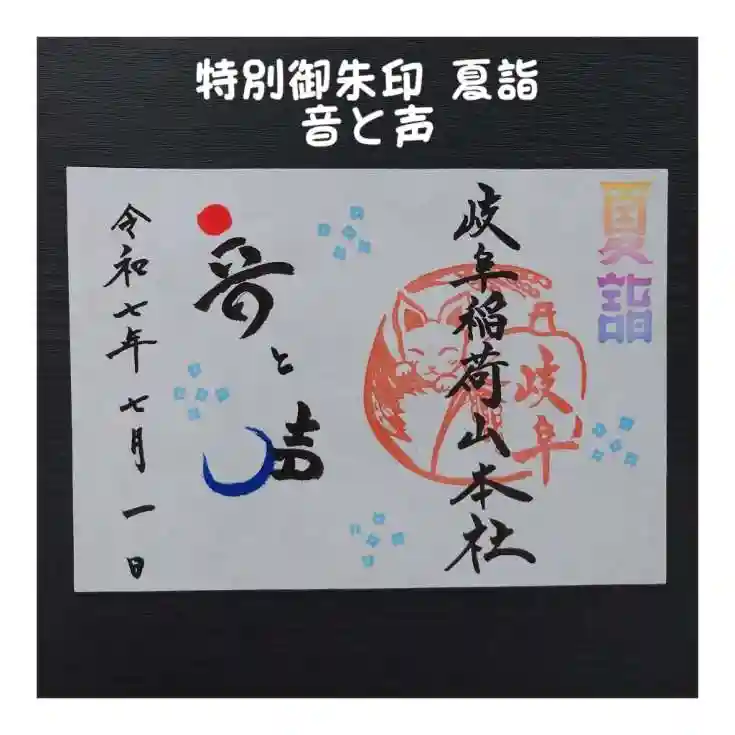 特別御朱印 夏詣
音と声
夏詣
岐阜稲荷山本社
岐阜
音と声
令和七年七月一日